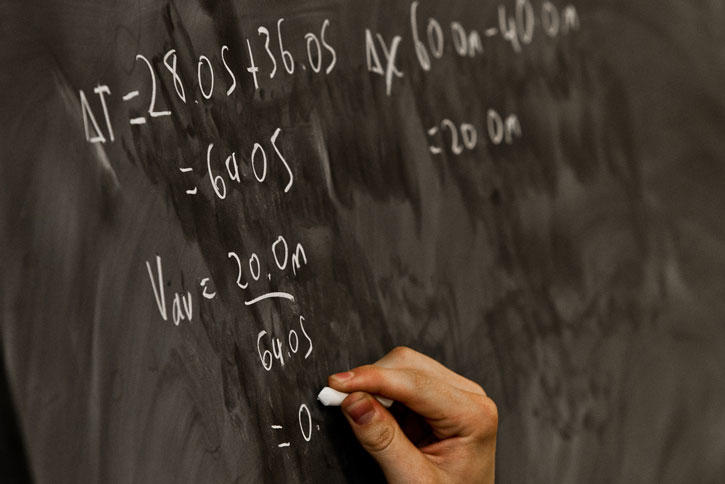 ΔT = 28.0s + 36.0s
= 64.0s
Δx 60.0m - 40.0m
= 20.0m
Vav = 20.0m
64.0s
= 0.